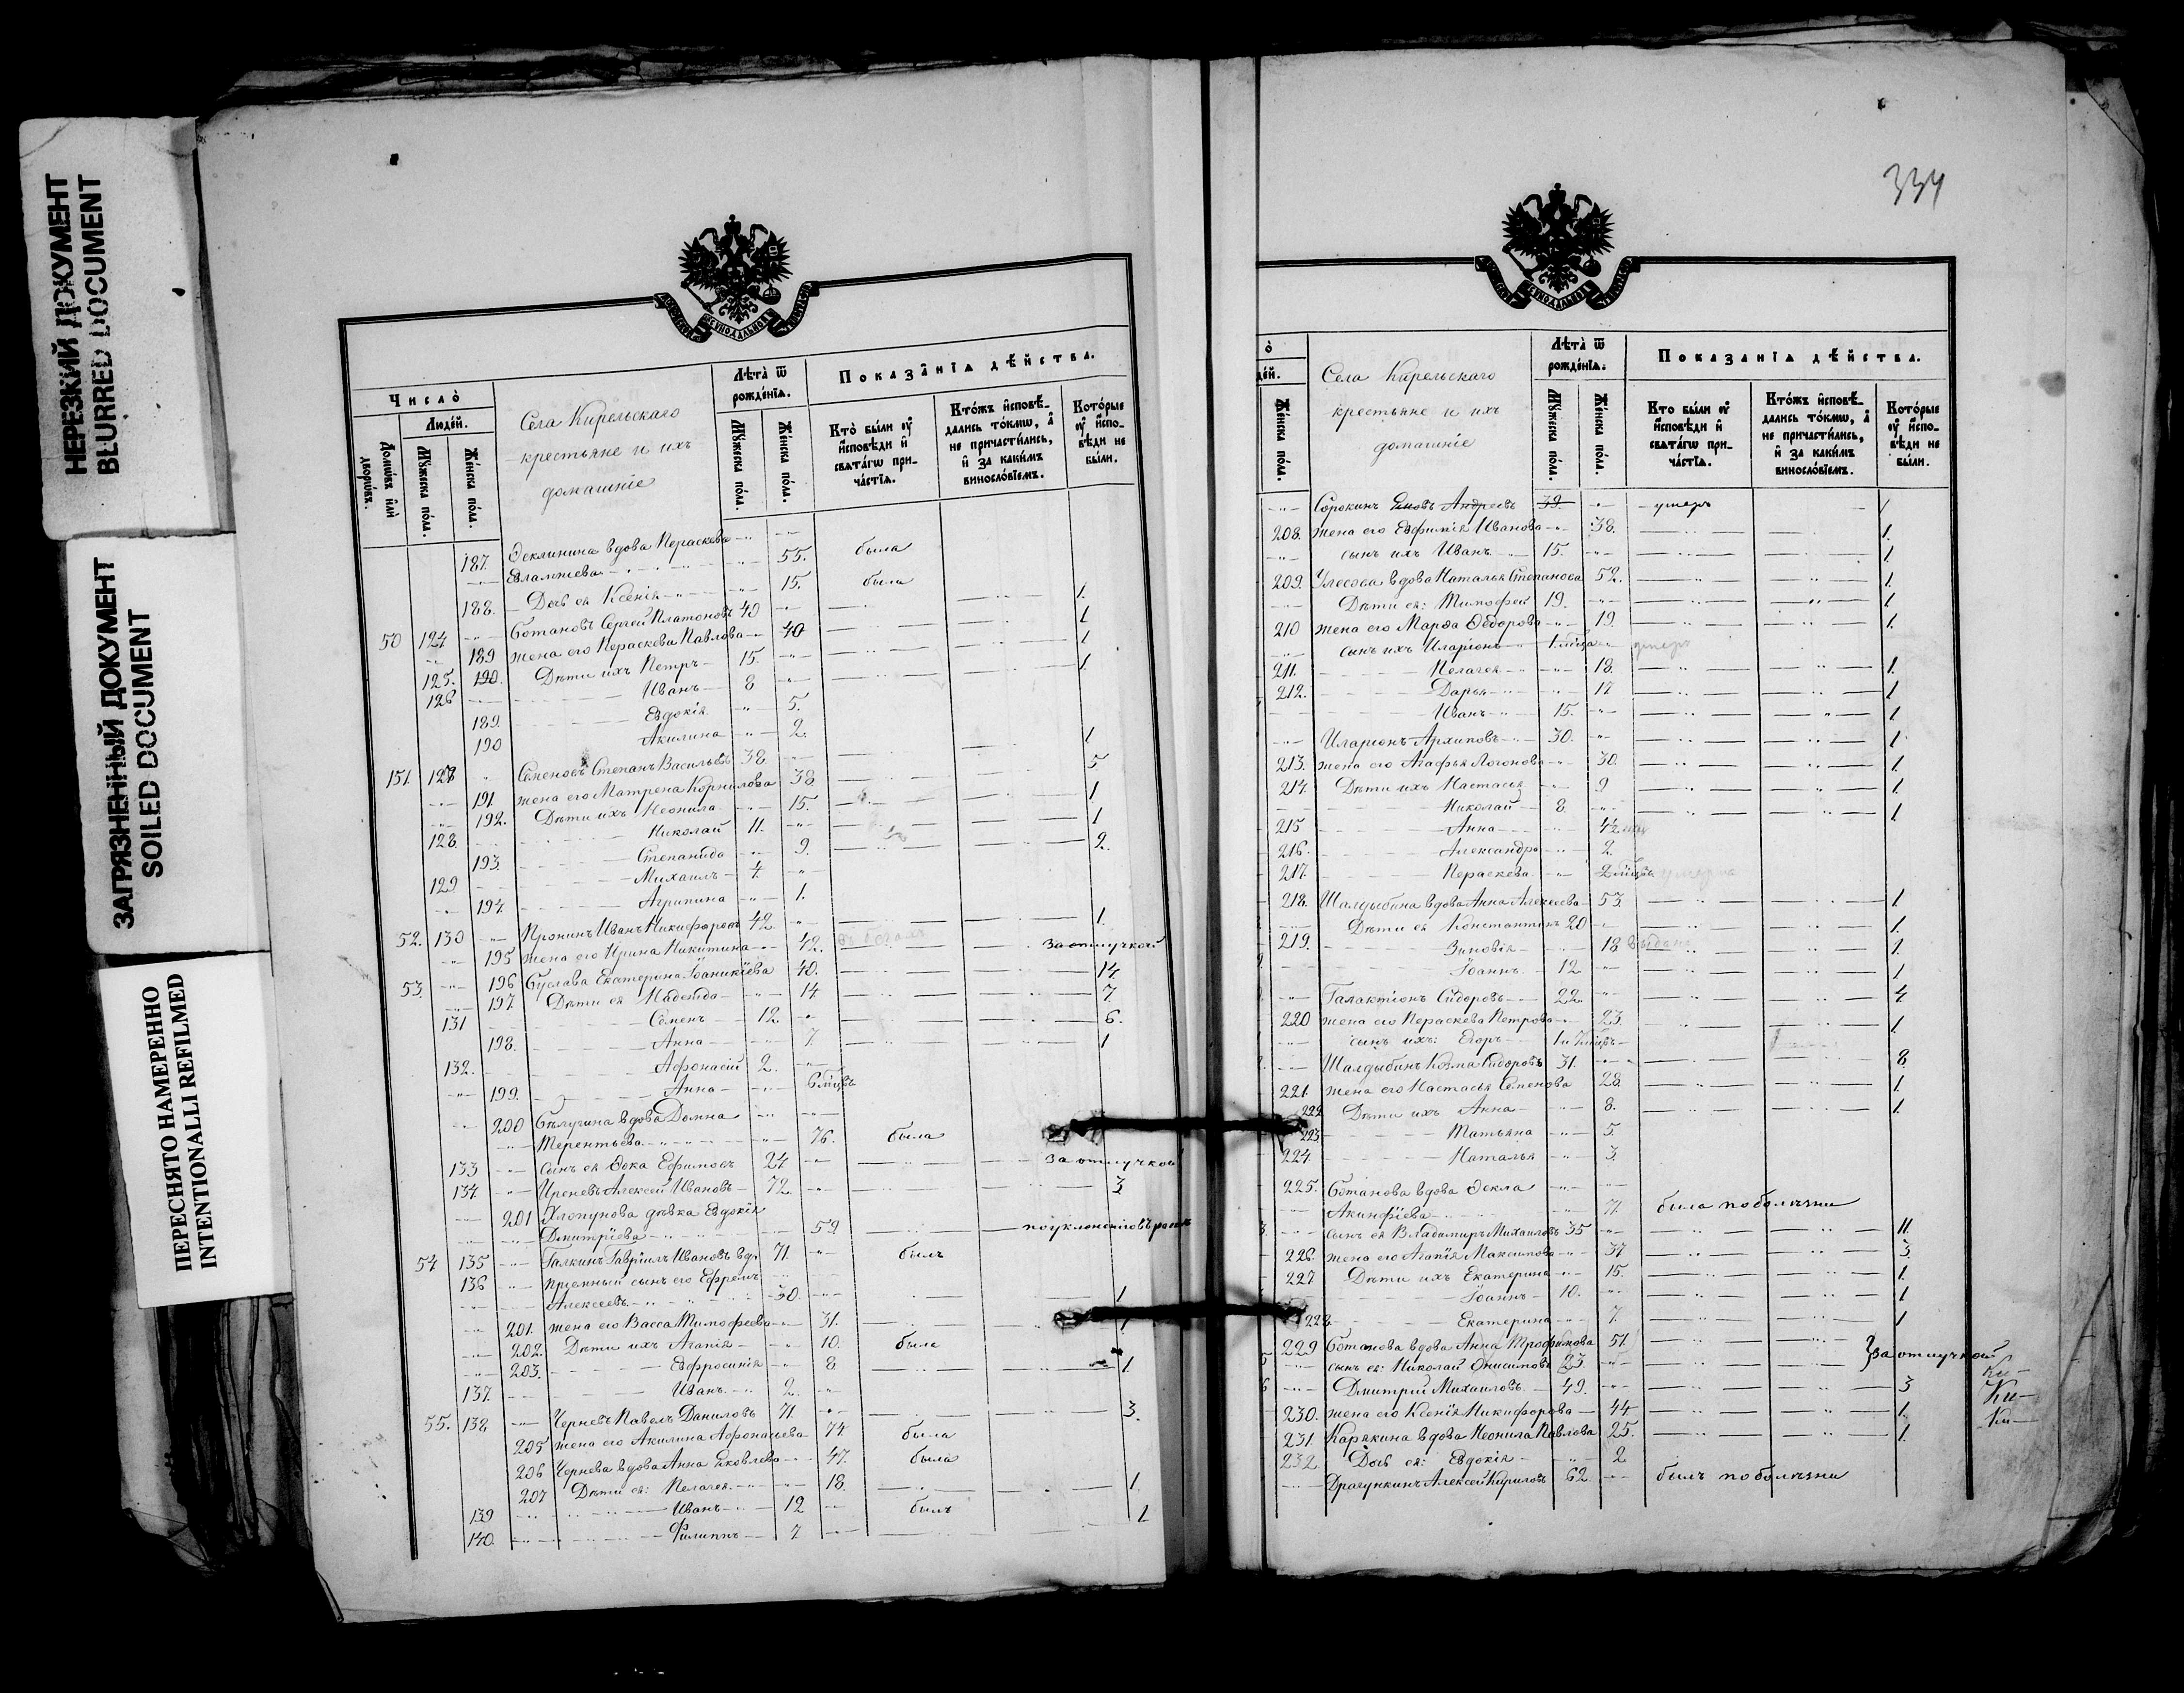 НЕРЕЗКИЙ ДОКУМЕНТ
BLURRED DOCUMENT
ЗАГРЯЗНЕННЫЙ ДОКУМЕНТ
SOILED DOCUMENT
ПЕРЕСНЯТО НАМЕРЕННО
INTENTIONALLI REFILMED
Число̀
Людéй.
Домѡвъ илѝ дворѡвъ.
Мꙋ́жеска по́ла.
Же́нска по́ла.
Села Кирельскаго
крестьяне и ихъ
домашніе
Лѣта̀ ѿ рождéнїѧ.
Мꙋ́жеска по́ла.
Же́нска по́ла.
Показа̑нїѧ дѣ́йства.
Кто̀ бы́ли ᲂу҆ и҆сповѣди и҆ свѧта́гѡ при-ча́стїѧ.
Кто́жъ и҆сповѣ́-дались то́кмѡ, а҆ не причасти́лись, и҆ за каки́мъ виносло́вїемъ.
Кото́рые ᲂу҆ и҆спо-вѣди не бы́ли.
187. вдова Пераскева
Евлампиева 55. была
188. Дочь ея Ксенія 15. была
50 124 Ботановъ Сергей Платоновъ 40 1.
189 жена его Пераскева Павлова 40 1
125. 190. Дѣти ихъ Петръ 15. 1
126 Иванъ 8 1.
189. Евдокія 5.
190 Акилина 2.
151. 127 Семеновъ Степанъ Васильевъ 38 1
191. жена его Матрена Корнилова 38 5
192. Дѣти ихъ Неонила 15. 1
128. Николай 11. 1
193. Степанида 9. 2.
129 Михаилъ 4.
194. Агрипина 1.
52. 130 Пронинъ Иванъ Никифоровъ 42 1.
195 жена его Ирина Никитина 42. за отлучкой
53. 196 Суслава Екатерина Іоаникіева 40. 14.
197. Дѣти ея Надежда 14 7
131 Семенъ 12. 6.
198. Анна 7 1
132. Афонасій 2.
199. Анна 6 м-цевъ
200 вдова Домна
Терентьева 76. была
133 сынъ ея Ѳока Ефимовъ 24 за отлучкой
134. Иреневъ Алексей Ивановъ 72. 3
201 Хлопунова дѣвка Евдокія
Дмитріева 59.
54 135 Галкинъ Гавріилъ Ивановъ вд. 71. былъ
136 пріемный сынъ его Ефремъ
Алексеевъ 30. 1
201. жена его Васса Тимофеева 31. 1
202. Дѣти ихъ Агапія 10. была
203. Евфросинія 8. 1.
137. Иванъ 2.
55. 138. Черневъ Павелъ Даниловъ 71. 3.
205 жена его Акилина Афонасьева 74 была
206 Чернева вдова Анна Яковлева 47. была
207 Дѣти ея: Пелагея 18. 1.
139 Иванъ 12 былъ
140. Филиппъ 7 1
334
о̀
дéй.
Же́нска по́ла.
Села Кирельскаго
крестьяне и ихъ
домашніе
Лѣта̀ ѿ рождéнїѧ.
Мꙋ́жеска по́ла.
Же́нска по́ла.
Показа́нїѧ дѣ́йства.
Кто бы́ли ᲂу҆ и҆сповѣди и҆ свѧта́гѡ при-ча́стїѧ.
Кто́жъ и҆сповѣ́-дались то́кмѡ, а҆ не причасти́лись, и҆ за каки́мъ виносло́вїемъ.
Кото́рые ᲂу҆ и҆спо-вѣди не бы́ли.
Сорокинъ Андреевъ 39. умеръ 1
208. жена его Евфимія Иванова 38. 1.
сынъ ихъ Иванъ 15. 1
209. вдова Наталья Степанова 52. 1
Дѣти ея: Тимофей 19. 1
210 жена его Марѳа Ѳедорова 19. 1.
сынъ ихъ Иларіонъ умеръ
211. Пелагея 18. 1
212. Дарья 17 1
Иванъ 15. 1
Иларіонъ Архиповъ 30. 1
213. жена его Агафья Логонова 30. 1.
214. Дѣти ихъ Настасья 9 1
Николай 8. 1
215 Анна
216. Александра 2.
217. Пераскева умерла
218. Шалдыбина вдова Анна Алексеева 53. 1
Дѣти ея Константинъ 20 1.
219. Зиновія 18 выдана 1.
Іоаннъ 12 1
Галактіонъ Сидоровъ 22. 4
220 жена его Пераскева Петрова 23. 1
сынъ ихъ: Егоръ
Шалдыбинъ Козма Сидоровъ 31. 8
221. жена его Настасья Семенова 28. 1.
222 Дѣти ихъ Анна 8. 1
223 Татьяна 5.
224. Наталья 3.
225. Ботанова вдова Ѳекла
Акинфіева 71. была по болѣзни
сынъ ея Владимиръ Михаиловъ 35 11.
226. жена его Агапія Максимова 37 3.
227 Дѣти ихъ Екатерина 15. 1.
Іоаннъ 10. 1
228. Екатерина 7. 1
229 Ботанова вдова Анна Трофимова 51.
сынъ ея: Николай Онисимовъ 23. за отлучкой
Дмитрій Михаиловъ 49. 3
230. жена его Ксенія Никифорова 44 1.
231. Карякина вдова Неонила Павлова 25. 1.
232. Дочь ея: Евдокія 2
Драгункинъ Алексей Кириловъ 62. былъ по болѣзни